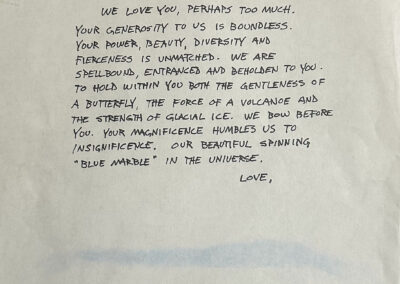 WE LOVE YOU, PERHAPS TOO MUCH.
YOUR GENEROSITY TO US IS BOUNDLESS.
YOUR POWER, BEAUTY, DIVERSITY AND
FIERCENESS IS UNMATCHED. WE ARE
SPELLBOUND, ENTRANCED AND BEHOLDEN TO YOU.
TO HOLD WITHIN YOU BOTH THE GENTLENESS OF
A BUTTERFLY, THE FORCE OF A VOLCANOE AND
THE STRENGTH OF GLACIAL ICE. WE BOW BEFORE
YOU. YOUR MAGNIFICENCE HUMBLES US TO
INSIGNIFICENCE. OUR BEAUTIFUL SPINNING
"BLUE MARBLE" IN THE UNIVERSE.
LOVE,